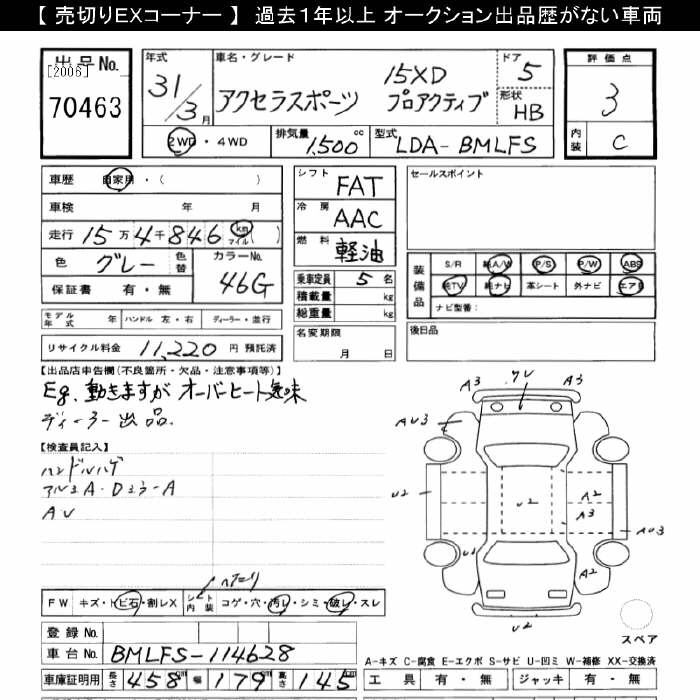 【 売切りEXコーナー 】 過去1年以上 オークション出品歴がない車両
出品 No.
[2006]
70463
年式 31/3月
車名・グレード 15XD ドア 5
アクセラスポーツ プロアクティブ 形状 HB
2WD・4WD 排気量 1,500 cc 型式 LDA-BMLFS
評価点
3
内装 C
車歴 自家用・( )
車検 年 月
走行 15万4千846 km マイル ( )
色 グレー 色替 カラーNo. 46G
保証書 有・無
モデル年式 年 ハンドル 左・右 ディーラー・並行
リサイクル料金 11,220 円 預託済
シフト FAT
冷房 AAC
燃料 軽油
乗車定員 5 名
積載量 kg
総重量 kg
名変期限
月 日
セールスポイント
装備品 S/R 純A/W P/S P/W ABS
純TV 純ナビ 革シート 外ナビ エアB
ナビ型番:
後日品
【出品店申告欄(不良箇所・欠品・注意事項等)】
Eg. 動きますが オーバーヒート気味
ディーラー出品.
【検査員記入】
ハンドルハゲ
アルミA・DミラーA
AU
A3 A3
AU3
U2 U2 A2
A3
AU3
U1 A2
U2
スペア
FW キズ・トビ石・割レX シート内装 コゲ・穴・汚レ・シミ・破レ・スレ
登録 No.
車台 No. BMLFS-114628
車庫証明用 長さ 458 幅 179 高さ 145
A-キズ C-腐食 E-エクボ S-サビ U-凹ミ W-補修 XX-交換済
工具 有・無 ジャッキ 有・無